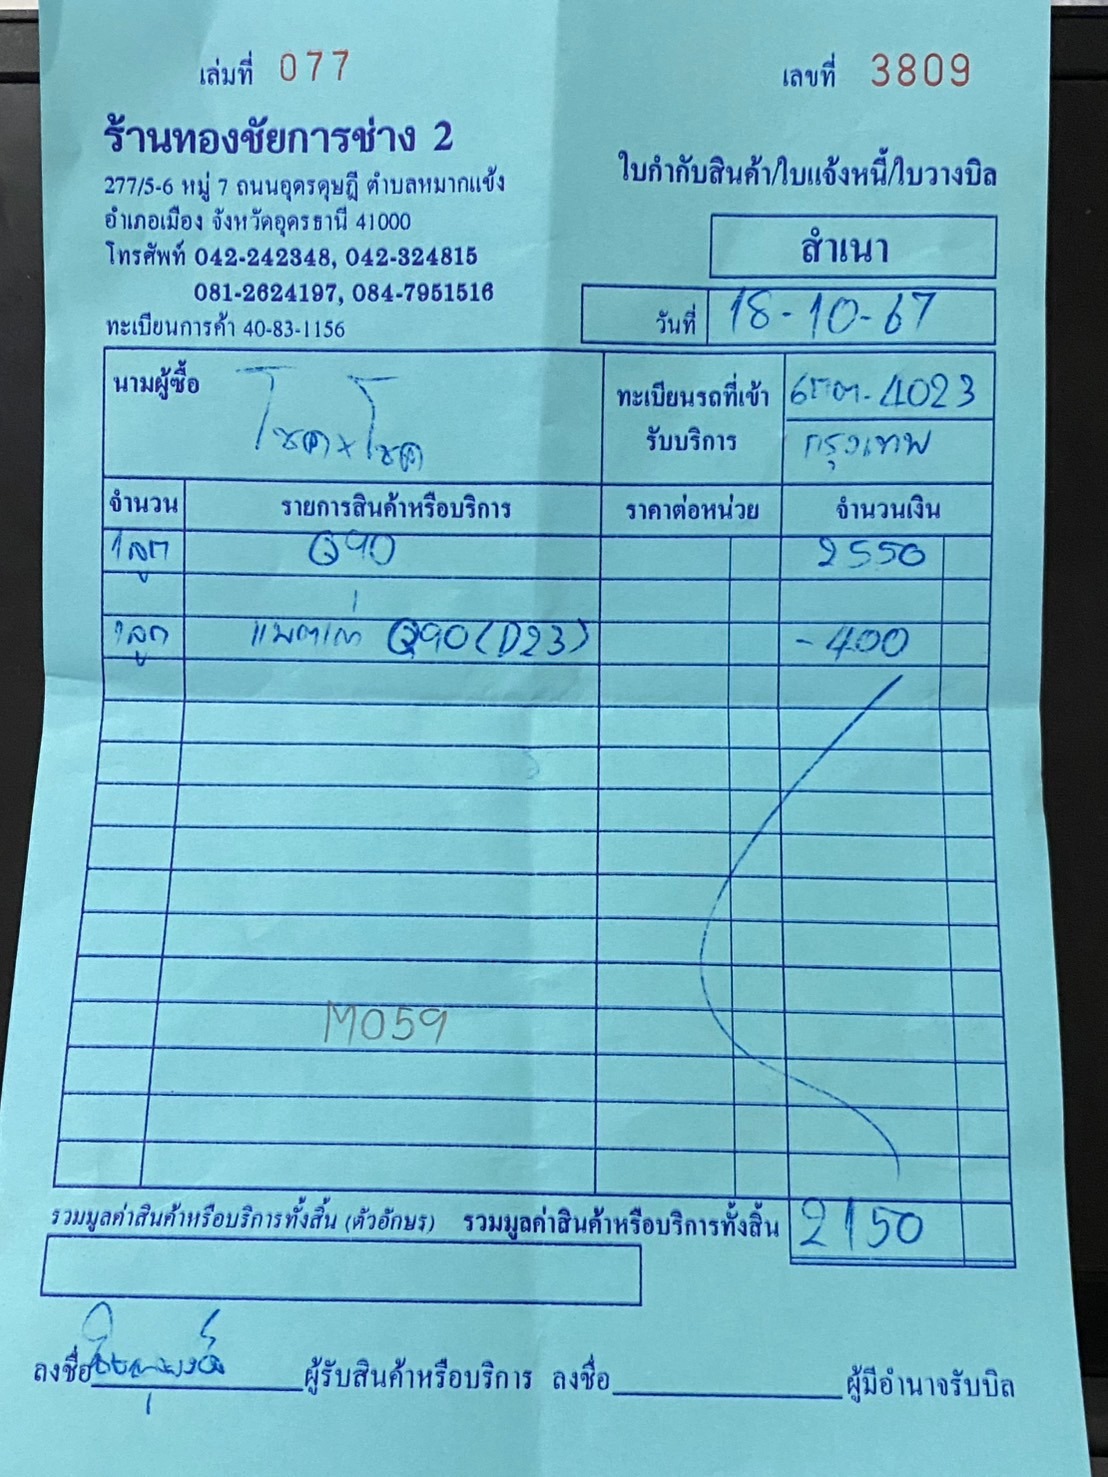 เล่มที่ 077
เลขที่ 3809
ร้านทองชัยการช่าง 2
277/5-6 หมู่ 7 ถนนอุดรดุษฎี ตำบลหมากแข้ง
อำเภอเมือง จังหวัดอุดรธานี 41000
โทรศัพท์ 042-242348, 042-324815
081-2624197, 084-7951516
ทะเบียนการค้า 40-83-1156
ใบกำกับสินค้า/ใบแจ้งหนี้/ใบวางบิล
สำเนา
วันที่ 18-10-67
นามผู้ซื้อ โชค x โชค
ทะเบียนรถที่เข้า
รับบริการ
4023
กรุงเทพ
จำนวน รายการสินค้าหรือบริการ ราคาต่อหน่วย จำนวนเงิน
1 ลูก Q90 2550
1 ลูก แบตเก่า Q90 (D23) -400
M059
รวมมูลค่าสินค้าหรือบริการทั้งสิ้น (ตัวอักษร) รวมมูลค่าสินค้าหรือบริการทั้งสิ้น 2150
ลงชื่อ ผู้รับสินค้าหรือบริการ ลงชื่อ ผู้มีอำนาจรับบิล